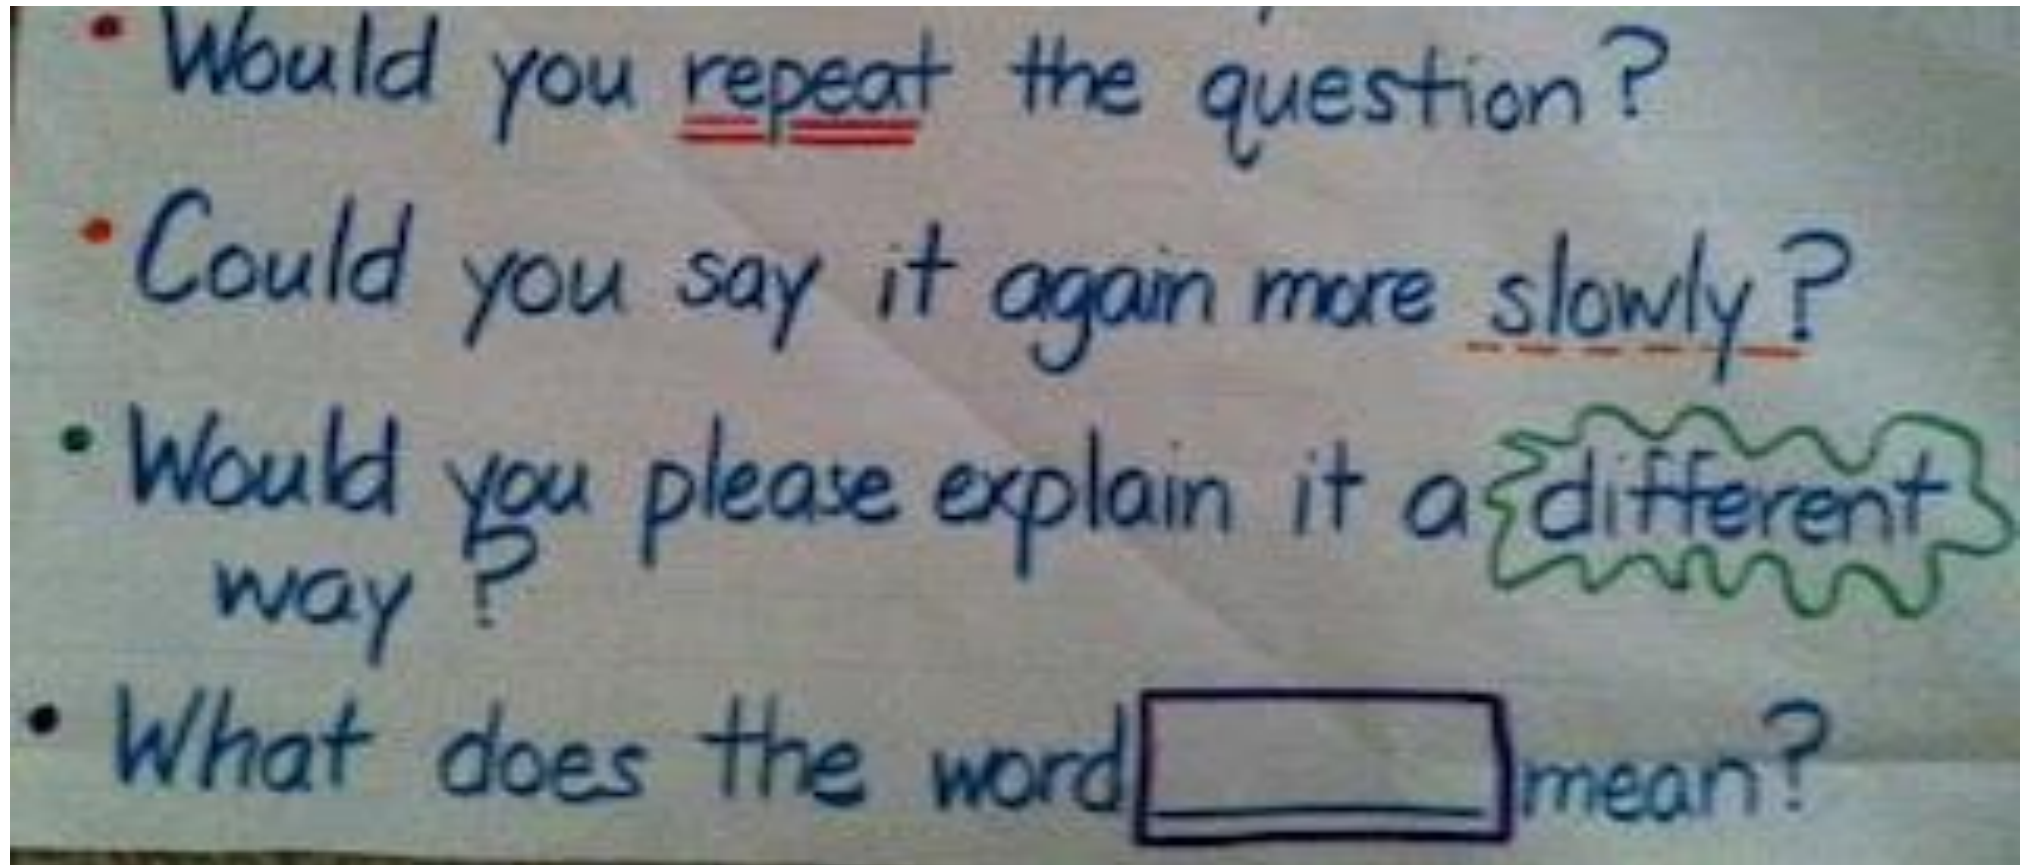 • Would you repeat the question?
• Could you say it again more slowly?
• Would you please explain it a different
way?
• What does the word ____ mean?